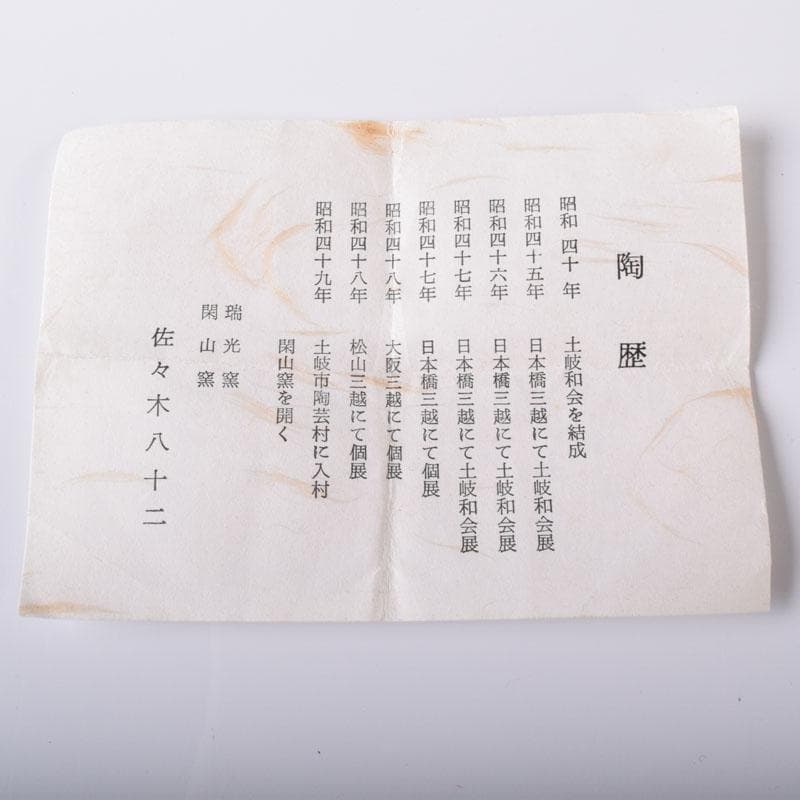 陶歴
昭和四十年 土岐和会を結成
昭和四十五年 日本橋三越にて土岐和会展
昭和四十六年 日本橋三越にて土岐和会展
昭和四十七年 日本橋三越にて土岐和会展
昭和四十七年 日本橋三越にて個展
昭和四十八年 大阪三越にて個展
昭和四十八年 松山三越にて個展
昭和四十九年 土岐市陶芸村に入村
閑山窯を開く
瑞光窯
閑山窯
佐々木八十二